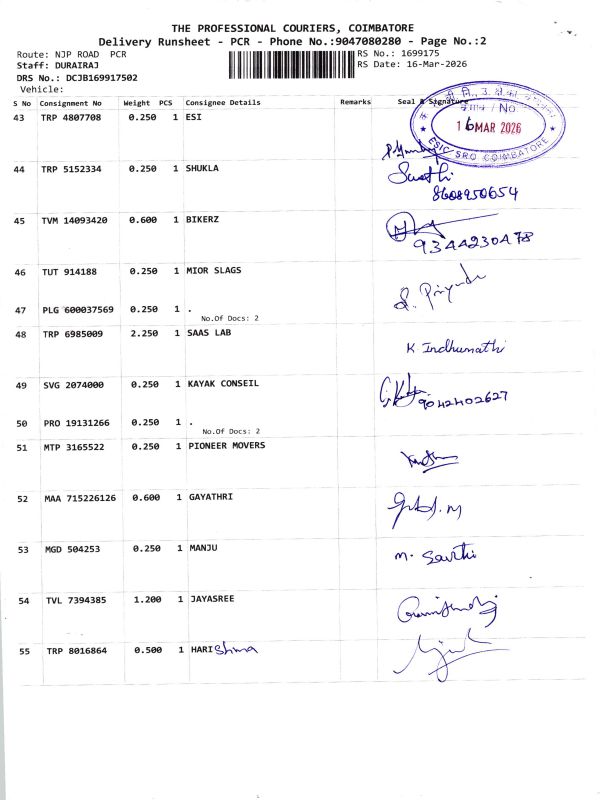 THE PROFESSIONAL COURIERS, COIMBATORE
Delivery Runsheet - PCR - Phone No.:9047080280 - Page No.:2
Route: NJP ROAD PCR
RS No.: 1699175
Staff: DURAIRAJ
RS Date: 16-Mar-2026
DRS No.: DCJB169917502
Vehicle:
S No Consignment No Weight PCS Consignee Details Remarks Seal & Signature
43 TRP 4807708 0.250 1 ESI
No.
16 MAR 2026
ESIC SRO COIMBATORE
44 TRP 5152334 0.250 1 SHUKLA
Swathi
8608950654
45 TVM 14093420 0.600 1 BIKERZ
9344230478
46 TUT 914188 0.250 1 MIOR SLAGS
47 PLG 600037569 0.250 1 .
No.Of Docs: 2
48 TRP 6985009 2.250 1 SAAS LAB
K. Indhumathi
49 SVG 2074000 0.250 1 KAYAK CONSEIL
9042402627
50 PRO 19131266 0.250 1 .
No.Of Docs: 2
51 MTP 3165522 0.250 1 PIONEER MOVERS
52 MAA 715226126 0.600 1 GAYATHRI
53 MGD 504253 0.250 1 MANJU
54 TVL 7394385 1.200 1 JAYASREE
55 TRP 8016864 0.500 1 HARI